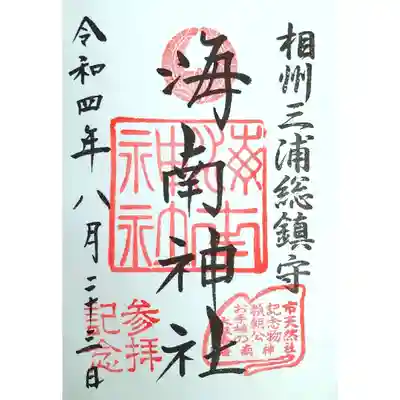 相州三浦総鎮守
海南神社
海南神社
令和四年八月二十三日
参拝
記念
市天然
記念物
頼朝公
お手植の